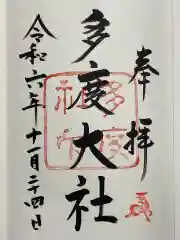 奉拝
多度大社
令和六年十一月二十四日